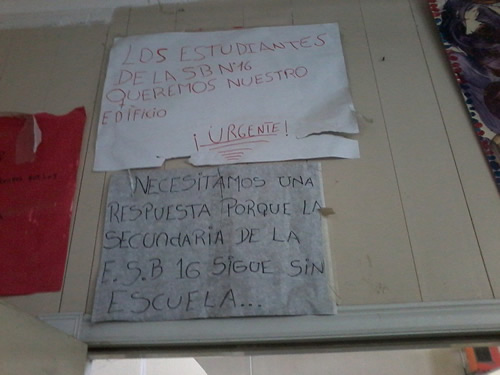 LOS ESTUDIANTES
DE LA SB Nº16
QUEREMOS NUESTRO
EDIFICIO
¡URGENTE!
NECESITAMOS UNA
RESPUESTA PORQUE LA
SECUNDARIA DE LA
E.S.B 16 SIGUE SIN
ESCUELA...